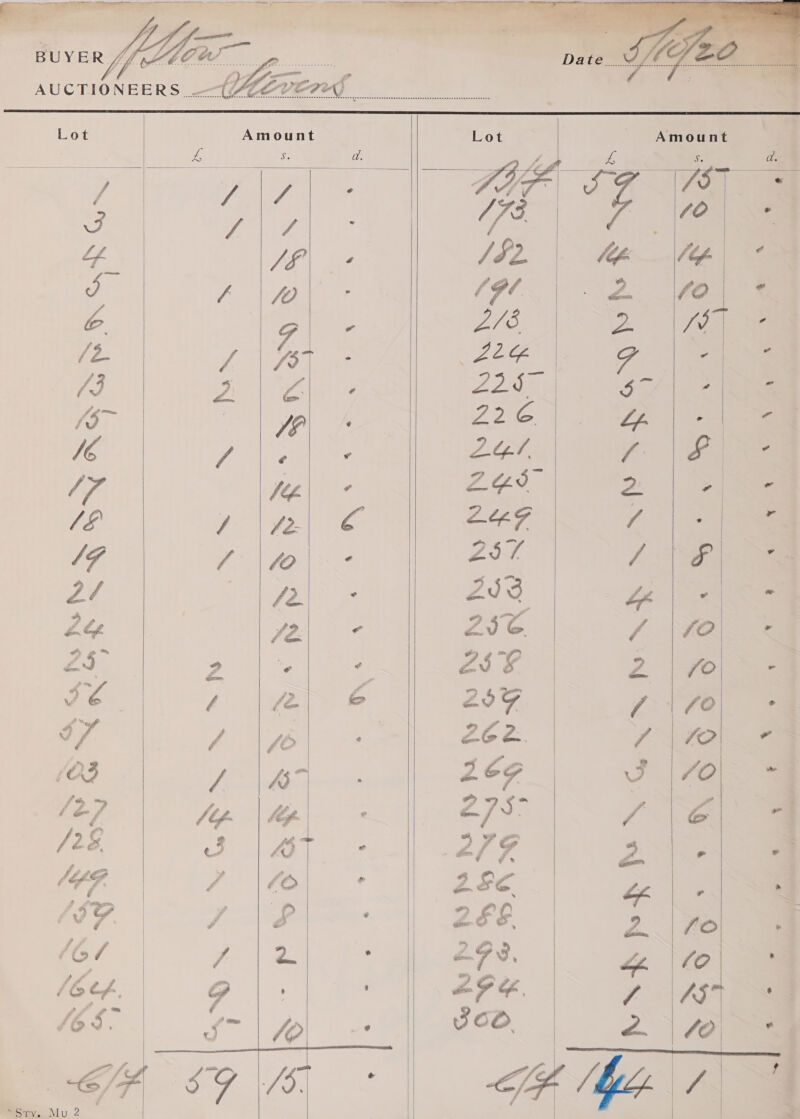 BUYER A Stow Date 5/10/20
AUCTIONEERS Stevens
Lot Amount
£ s. d.
1 1 1 -
3 1 1 -
4 18 -
5 1 10 -
6 9 -
12 1 15 -
13 2 6 -
15 18 -
16 1 - -
17 14 -
18 1 12 6
19 1 10 -
21 12 -
24 12 -
25 2 - -
56 1 12 6
57 1 10 -
103 1 15 -
127 14 14 -
128 3 15 -
149 1 10 -
159 1 8 -
161 1 2 -
164 9 - -
165 5 10 -
C/F 59 15 -
Sty. Mu 2
Lot Amount
£ s. d.
B/F 59 15 -
173 7 10 -
182 14 14 -
191 2 10 -
213 2 15 -
224 9 - -
225 5 - -
226 4 - -
241 1 8 -
245 2 - -
249 1 - -
251 1 8 -
253 4 - -
256 1 10 -
258 2 10 -
259 1 10 -
262 1 10 -
269 3 10 -
275 1 6 -
279 2 - -
286 4 - -
288 2 10 -
293 4 10 -
294 1 15 -
300 2 10 -
C/F 144 1 -